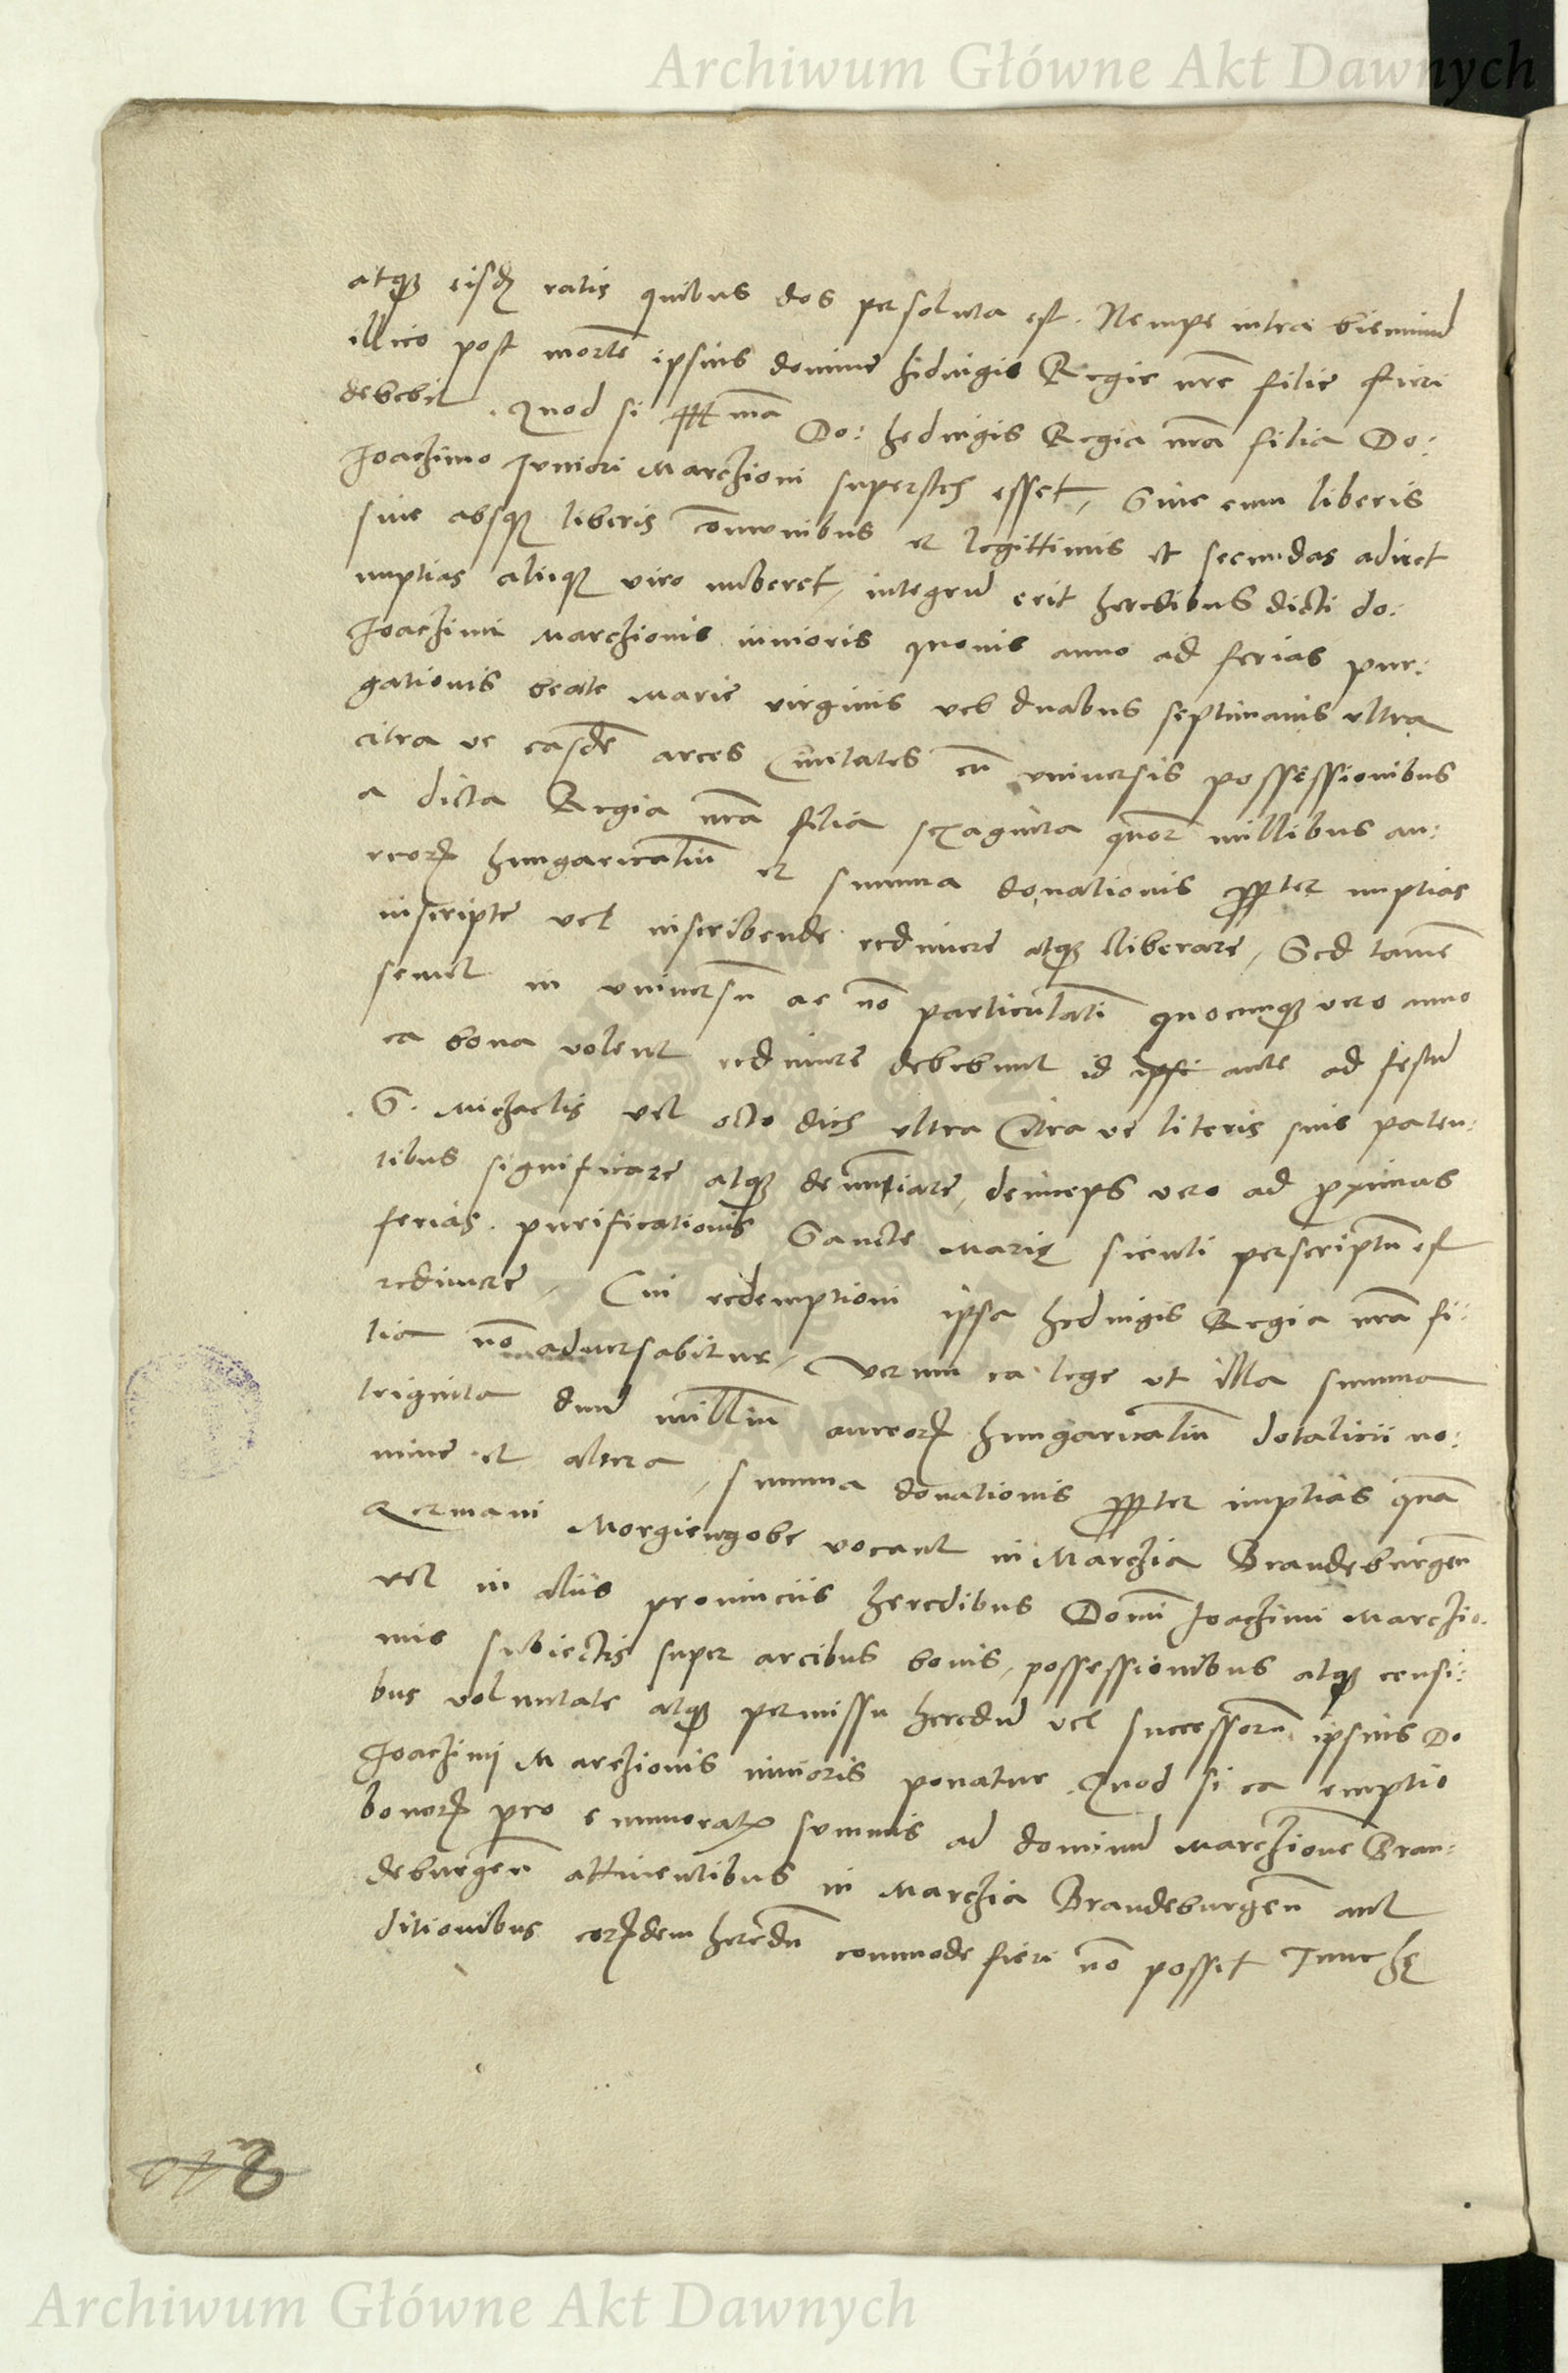 Archiwum Główne Akt Dawnych
atq₃ eisd ratis quibus dos persoluta est. Nempe intra bienniū
illico post mortē ipsius domine hedwigis Regie nrē filie fieri
debebit. Quod si Illma Do: hedwigis Regia nrā filia Do:
Joachimo Juniori Marchioni superstes esset, Sive cum liberis
sive absq₃ liberis cōmunibus et legittimis et secundas adiret
nuptias aliiq₃ viro nuberet, integrū erit heredibus dicti do:
Joachimi Marchionis iunioris quovis anno ad ferias pur:
gationis beate Marie virginis vel duabus septimanis ultra
citra ve easdē arces Civitates cū universis possessionibus
a dicta Regia nrā filia sexaginta quor millibus au:
reorꝝ hungaricaliū et summa donationis ꝓpter nuptias
inscripte vel inscribende redimere atq₃ liberare, Sed tamē
semel in universū ac nō particulatī quocunq₃ vero anno
ea bona volent redimere debebunt id ipsi ante ad festū
S. Michaelis vel octo dies ultra Citra ve literis suis paten:
tibus significare atq₃ denūntiare, deinceps vero ad proximas
ferias purificationis Sancte Marię sicuti perscriptū est
redimere, Cui redemptioni ipsa hedwigis Regia nrā fi:
lia nō adversabitur, Verum ea lege ut illa summa
triginta duū milliū aureorꝝ hungaricaliū dotalicii no:
mine et altera, summa donationis ꝓpter nuptias quā
Germani Morgiengobe vocant in Marchia Brandeburgeñ
vel in aliis provinciis heredibus Domī Joachimi Marchio:
nis subiectis super arcibus bonis, possessionibus atq₃ censi:
bus voluntate atq₃ permissu heredū vel successorū ipsius Do
Joachimi Marchionis iunioris ponatur. Quod si ea emptio
bonorꝝ pro enumeratis summis ad dominū Marchionē Bran:
deburgeñ attinentibus in Marchia Brandeburgeñ aut
ditionibus eorꝝdem heredū commode fieri nō possit Tunc hę
Archiwum Główne Akt Dawnych